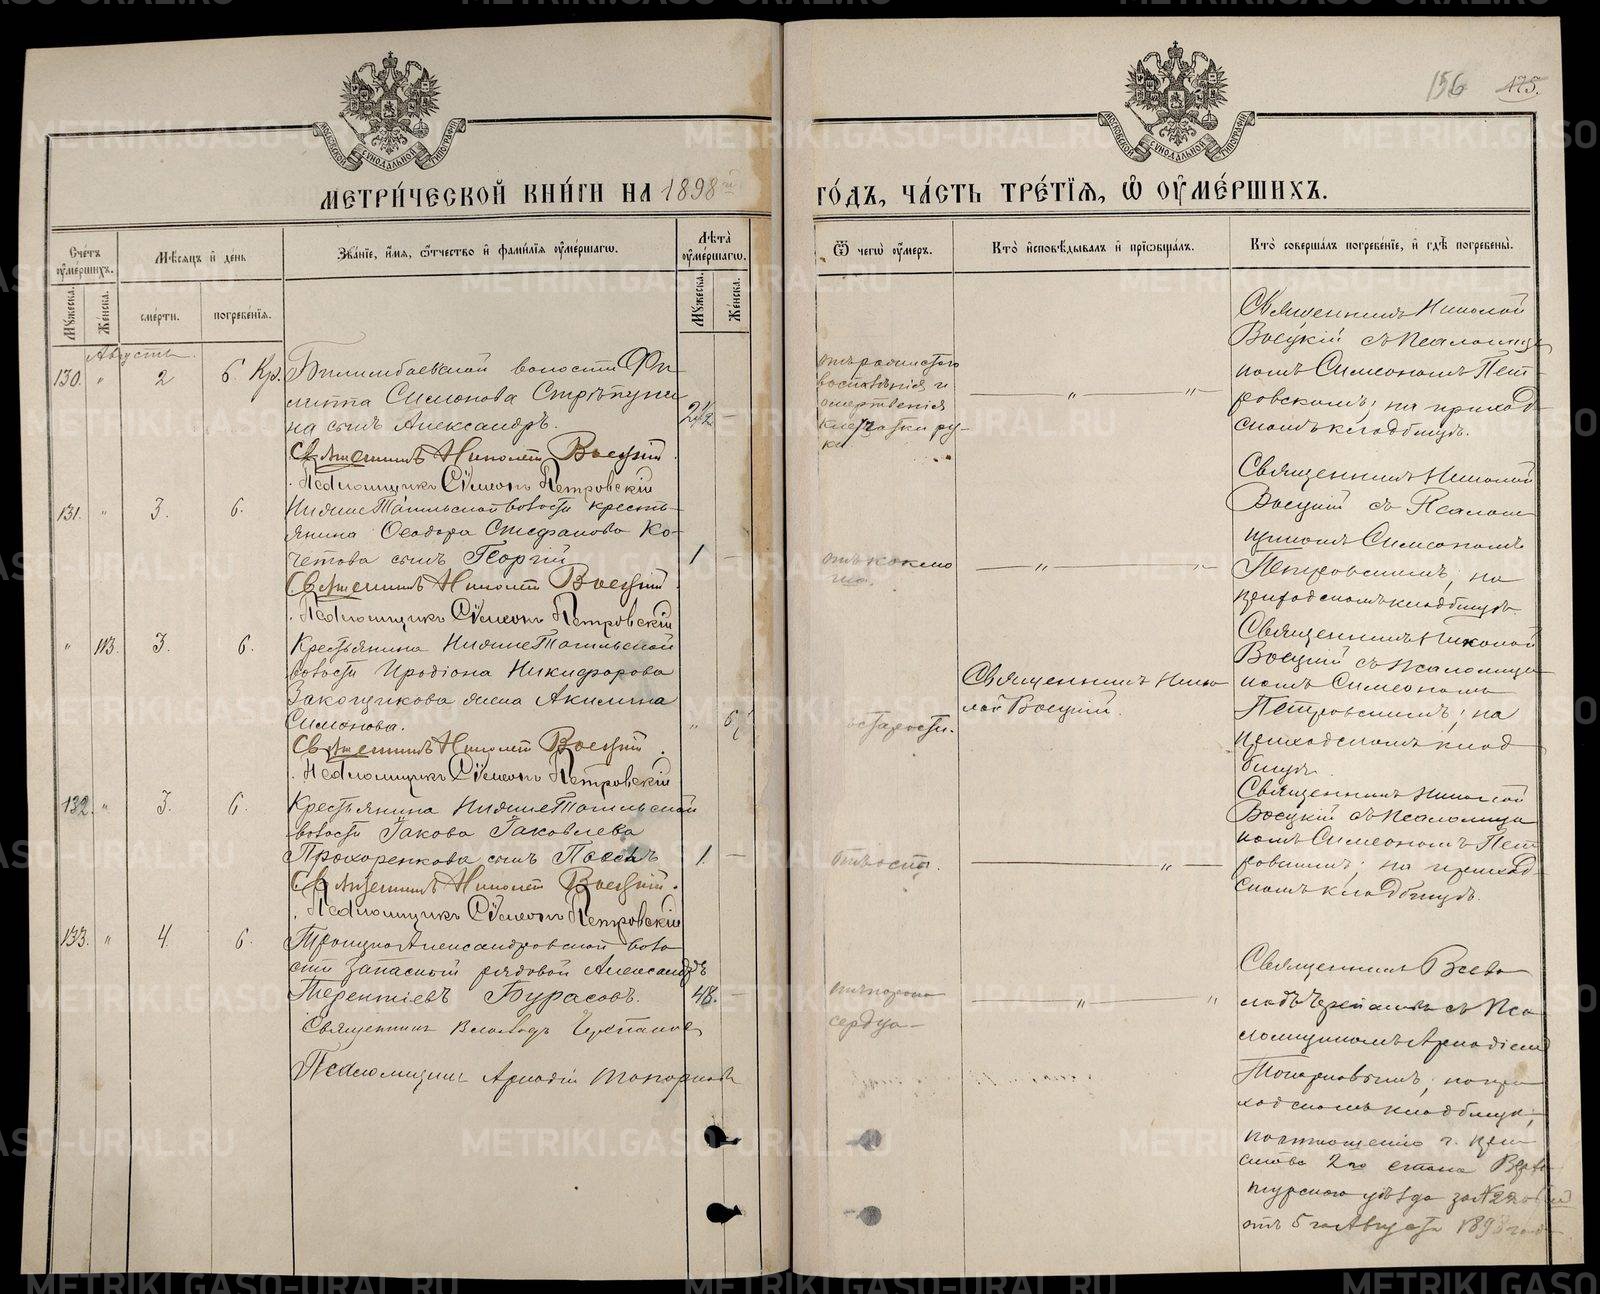 156 175.
МОСКОВСКОЙ СѴНОДАЛЬНОЙ ТИПОГРАФІИ
МОСКОВСКОЙ СѴНОДАЛЬНОЙ ТИПОГРАФІИ
МЕТРИ́ЧЕСКОЙ КНИ́ГИ НА 1898й
ГО́ДЪ, ЧА́СТЬ ТРЕ́ТЇЯ, Ѽ ОУ҆МЕ́РШИХЪ.
Сче́тъ оу҆ме́ршихъ.
Мꙋ́жеска. Же́нска.
Мѣ́сяцъ и҆ де́нь
сме́рти. погребе́нїя.
Зва́нїе, и҆́мя, ѻ҆́тчество и҆ фами́лїя оу҆ме́ршагѡ.
Лѣта̀ оу҆ме́ршагѡ.
Мꙋ́жеска. Же́нска.
Ѿ чегѡ̀ оу҆́меръ.
Кто̀ и҆сповѣ́дывалъ и҆ прїѡбща́лъ.
Кто̀ соверша́лъ погребе́нїе, и҆ гдѣ̀ погребены̀.
Августъ
130. " 2 6. Кр. Билимбаевской волости Фи-
липпа Симонова Стрѣпуни-
на сынъ Александръ. 2 1/2 —
Священникъ Николай Воецкій.
Псаломщикъ Сѵмеонъ Петровскій
отъ рожистого
воспаленія и
омертвенія
клетчатки ру-
ки
— " — " —
Священникъ Николай
Воецкій съ Псаломщи
комъ Симеономъ Пет-
ровскимъ; на приход-
скомъ кладбищѣ.
131. " 3. 6. Нижне Тагильской волости кресть-
янина Ѳеодора Стефанова Ко-
четова сынъ Георгій 1 —
Священникъ Николай Воецкій.
Псаломщикъ Сѵмеонъ Петровскій
— " — " —
Священникъ Николай
Воецкій съ Псалом
щикомъ Симеономъ
Петровскимъ; на
приходскомъ кладбищѣ.
" 113. 3. 6. Крестьянина Нижне Тагильской
волости Иродіона Никифорова
Закощикова жена Акилина
Симонова. "
Священникъ Николай Воецкій.
Псаломщикъ Сѵмеонъ Петровскій
старости.
Священникъ Нико
лай Воецкій.
Священникъ Николай
Воецкій съ Псаломщи
комъ Симеономъ
Петровскимъ; на
приходскомъ клад
бищѣ.
132. " 3. 6. Крестьянина Нижне Тагильской
волости Іакова Іаковлева
Прохоренкова сынъ Павелъ 1. —
Священникъ Николай Воецкій.
Псаломщикъ Сѵмеонъ Петровскій
отъ оспы.
— " —
Священникъ Николай
Воецкій съ Псаломщи
комъ Симеономъ Пет
ровскимъ; на приход-
скомъ кладбищѣ.
133. " 4. 6. Троицко Александровской воло
сти запасный рядовой Александръ
Терентіевъ Бурасовъ. 48. —
Священникъ Всеволодъ Черепановъ
Псаломщикъ Аркадій Топорковъ
отъ порока
сердца —
— " — "
Священникъ Всево
лодъ Черепановъ съ Пса
ломщикомъ Аркадіемъ
Топорковымъ; на при
ходскомъ кладбищѣ,
по отношенію г. при
става 2го стана Верхо
турскаго уѣзда за №
отъ 5 го Августа 1898 года
METRIKI.GASO-URAL.RU